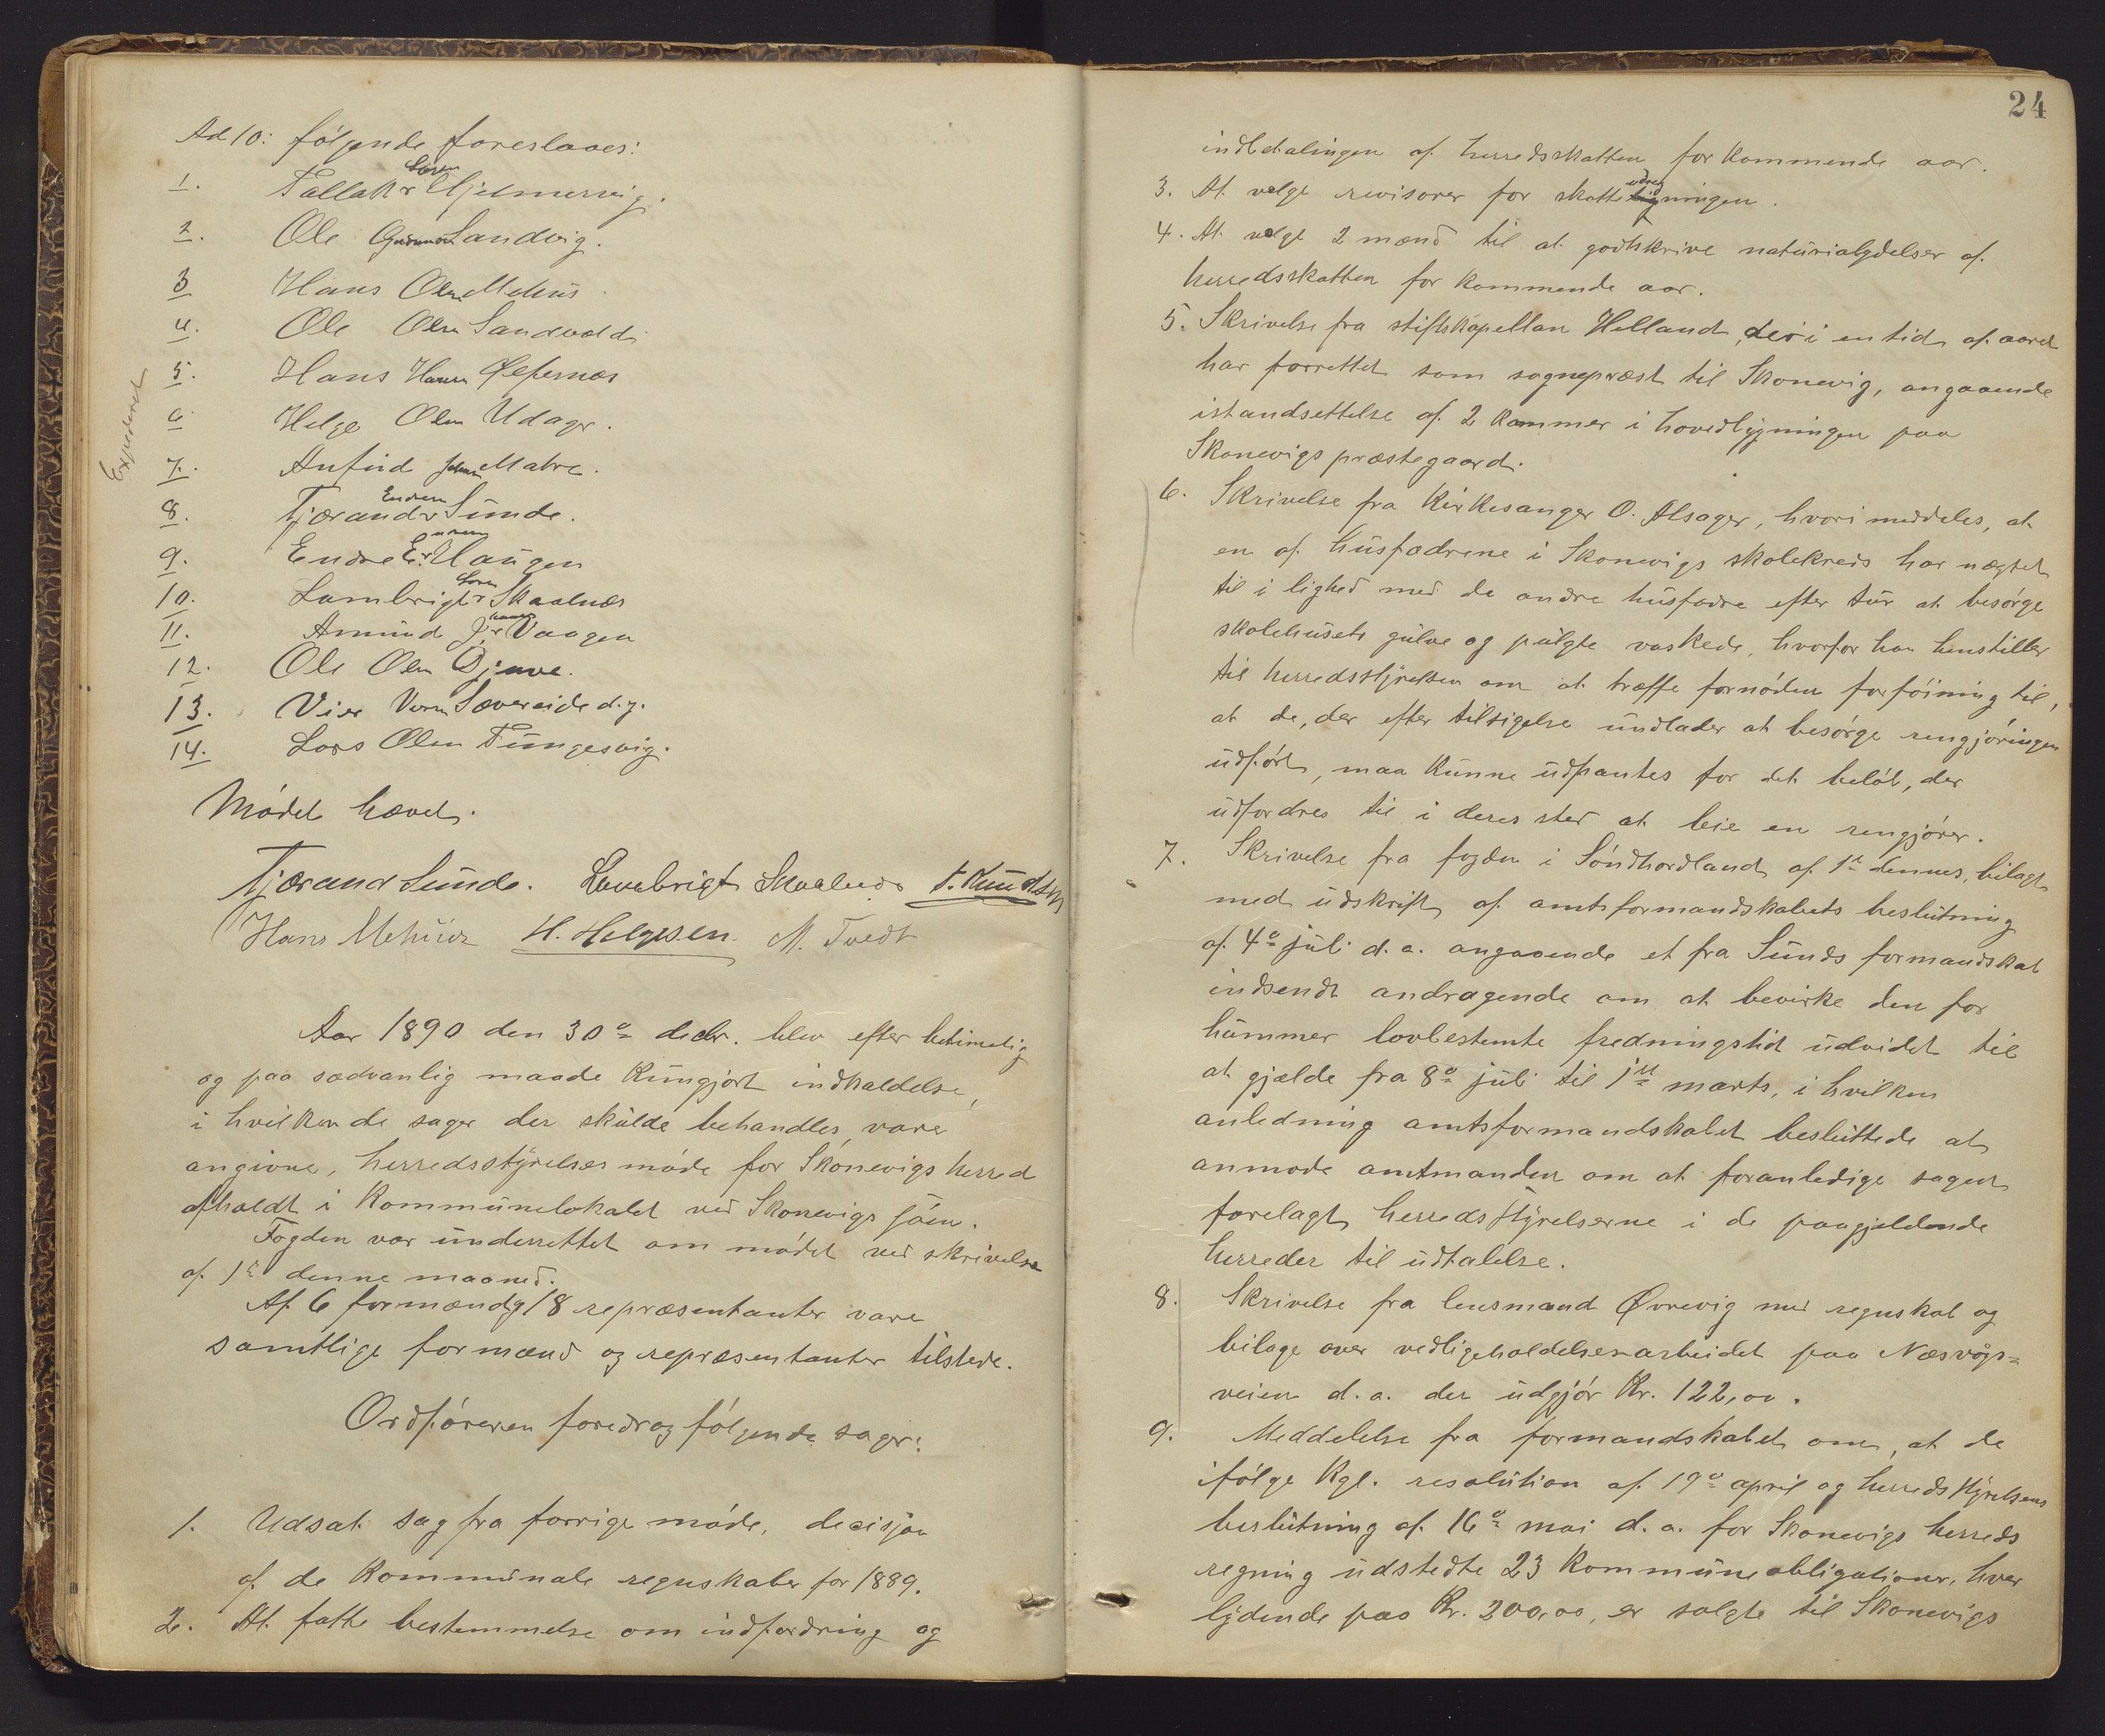 Ad 10: følgende foreslaaes:
1. Tallak Larsen Hjelmervig.
2. Ole Gudmunds. Sandvig.
3 Hans Olsen Mehus.
4. Ole Olsen Sandvold.
5. Hans Hansen Øpfernæs
6 Helge Olsen Udager.
7. Anfind Johns. Matre.
8. Tjærand Endresen Sunde.
9. Endre E. Haugen
10. Lambrigt Larsen Skaalnæs
11. Amund J. Vaagen
12. Ole Olsen Djuve.
13. Vier Viers. Sævereide d.y.
14. Lars Olsen Tungesvig.
Expederet
Mødet hævet.
Tjærand Sunde. Lambrigt Skaalnæs T. Knudsen
Hans Mehus H. Helgesen. M. Tvedt
Aar 1890 den 30e decbr. blev efter betimelig
og paa sædvanlig maade kungjort indkaldelse,
i hvilken de sager der skulde behandles, vare
angivne, herredsstyrelses møde for Skonevigs herred
afholdt i kommunelokalet ved Skonevigs søen.
Fogden var underrettet om mødet ved skrivelse
af 1e denne maaned.
Af 6 formænd og 18 repræsentanter vare
samtlige formænd og repræsentanter tilstede.
Ordføreren foredrog følgende sager:
1. Udsat sag fra forrige møde, decisjon
af de kommunale regnskaber for 1889.
2. At fatte bestemmelse om indfordring og
24
indbetalingen af herredsskatten for kommende aar.
3. At velge revisorer for skatteudregningen.
4. At velge 2 mænd til at godtskrive naturialydelser af
herredsskatten for kommende aar.
5. Skrivelse fra stiftskapellan Helland, der i en tid af aaret
har forrettet som sognepræst til Skonevig, angaaende
istandsettelse af 2 kammer i hovedbygningen paa
Skonevigs præstegaard.
6. Skrivelse fra kirkesanger O. Alsager, hvori meddeles, at
en af husfædrene i Skonevigs skolekreds har nægtet
til i lighed med de andre husfædre efter tur at besørge
skolehusets gulve og pulgte vaskede, hvorfor han henstiller
til herredsstyrelsen om at træffe fornøden forføining til,
at de, der efter tilsigelse undlader at besørge rengjøringen
udført, maa kunne udpantes for det beløb, der
udfordres til i deres sted at leie en rengjører.
7. Skrivelse fra fogden i Søndhordland af 1e dennes, bilagt
med udskrift af amtsformandskabets beslutning
af 4e juli d. a. angaaende et fra Sunds formandskab
indsendt andragende om at bevirke den for
hummer lovbestemte fredningstid udvidet til
at gjælde fra 8e juli til 1ste marts, i hvilken
anledning amtsformandskabet besluttede at
anmode amtmanden om at foranledige sagen
forelagt herredsstyrelserne i de paagjeldende
herreder til udtalelse.
8. Skrivelse fra lensmand Øvrevig med regnskab og
bilage over vedligeholdelsesarbeidet paa Næsvågs-
veien d. a. der udgjør Kr. 122,00.
9. Meddelelse fra formandskabet om, at de
ifølge Kgl. resolution af 19e april og herredsstyrelsens
beslutning af 16e mai d. a. for Skonevigs herreds
regning udstedte 23 kommuneobligationer, hver
lydende paa Kr. 200,00, er solgte til Skonevigs